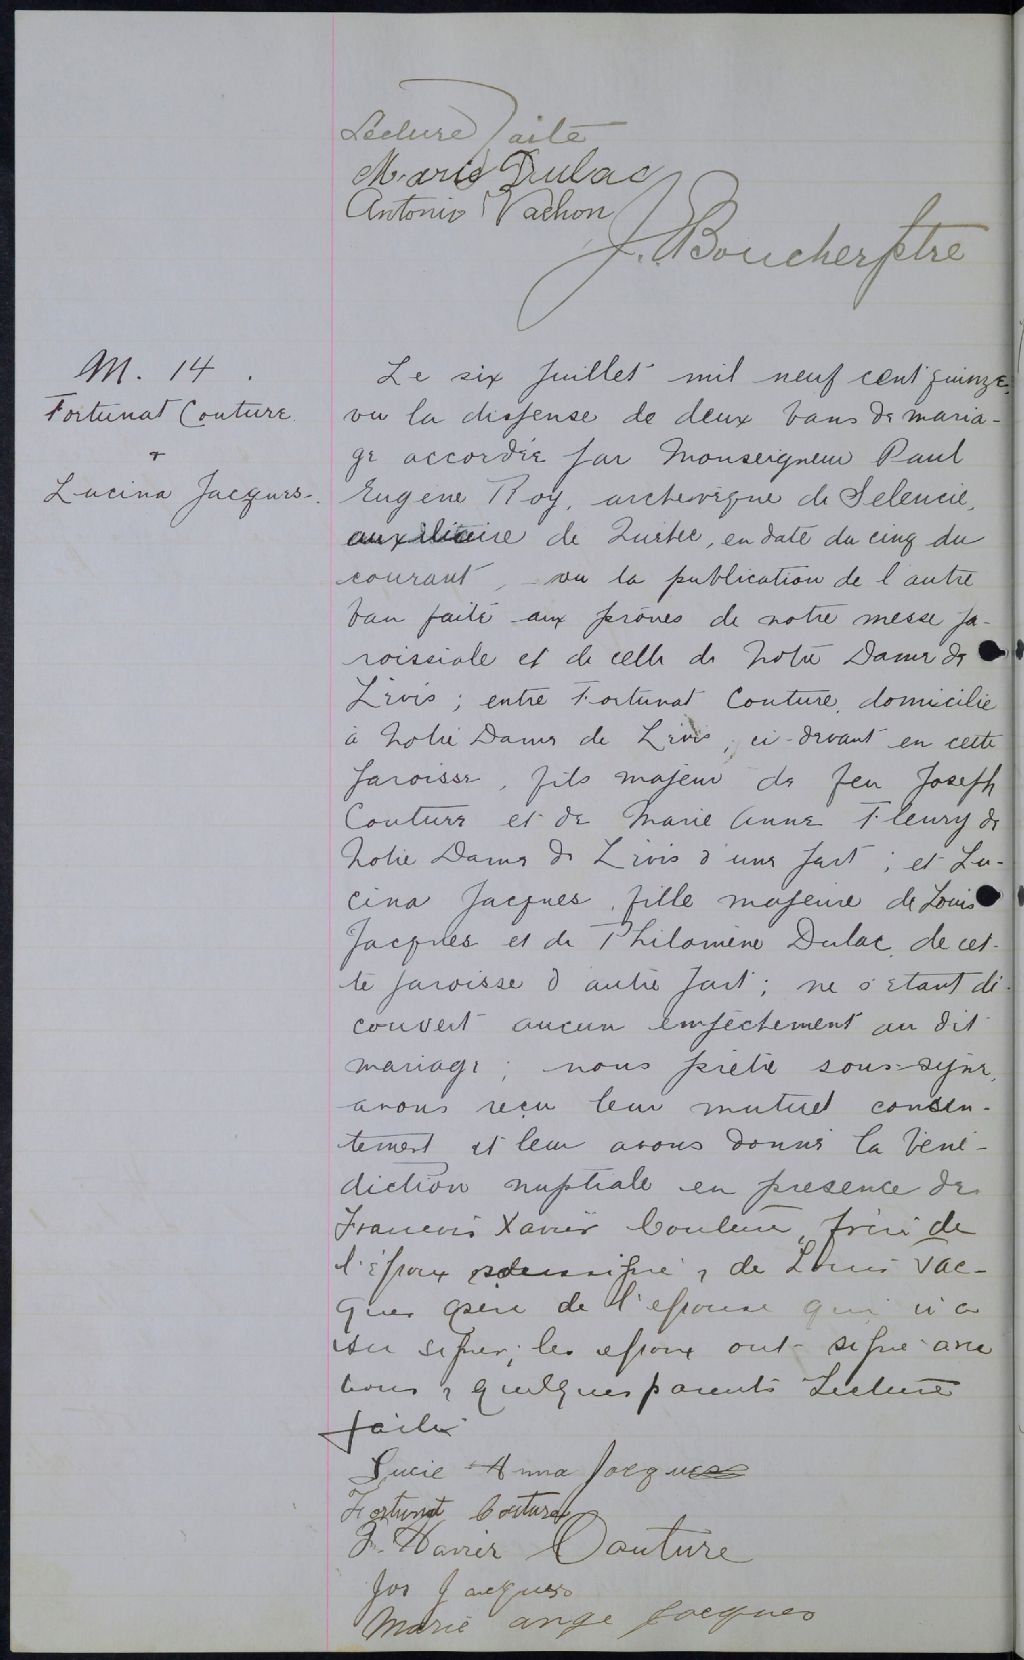 Lecture faite
Marie Dulac
Antonio Vachon
J. Boucher ptre
M. 14.
Fortunat Couture
+
Lucina Jacques.
Le six juillet mil neuf cent quinze,
vu la dispense de deux bans de maria-
ge accordée par Monseigneur Paul
Eugène Roy, archevêque de Seleucie,
auxiliaire de Québec, en date du cinq du
courant, vu la publication de l'autre
ban faite aux prônes de notre messe pa-
roissiale et de celle de Notre Dame de
Lévis; entre Fortunat Couture, domicilié
à Notre Dame de Lévis, ci-devant en cette
paroisse, fils majeur de feu Joseph
Couture et de Marie Anne Fleury de
Notre Dame de Lévis d'une part; et Lu-
cina Jacques, fille majeure de Louis
Jacques et de Philomène Dulac, de cet-
te paroisse d'autre part; ne s'étant dé-
couvert aucun empêchement au dit
mariage; nous prêtre sous-signé,
avons reçu leur mutuel consen-
tement et leur avons donné la béné-
diction nuptiale en presence de
Francois Xavier Couture, frère de
l'époux soussigné, de Louis Jac-
ques père de l'epouse qui n'a
su signer; les epoux ont signé avec
nous, quelques parents Lecture
faite
Lucie Anna Jacques
Fortunat Couture
F. Xavier Couture
Jos Jacques
Marie ange Jacques